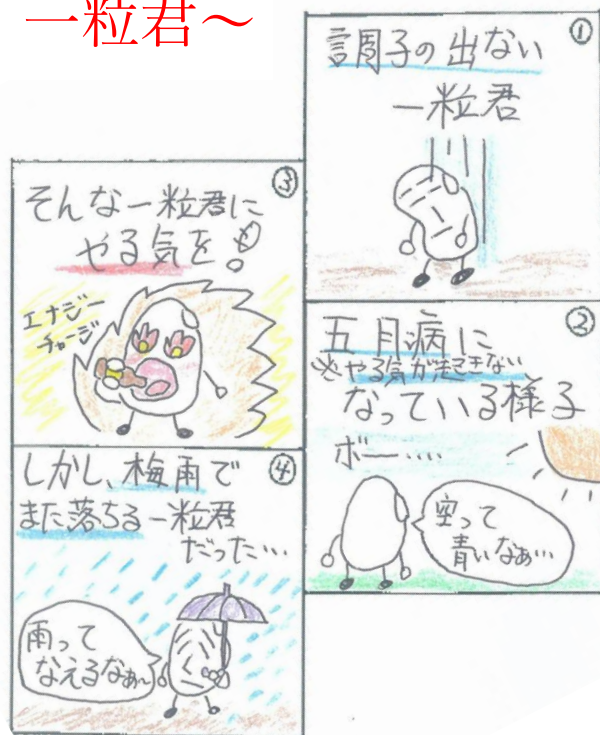 一粒君～
①
調子の出ない
一粒君
②
五月病に
※やる気が起きない
なっている様子
ボー‥‥
空って
青いなぁ…
③
そんな一粒君に
やる気を!
エナジー
チャージ
④
しかし、梅雨で
また落ちる一粒君
だった…
雨って
なえるなぁ〜